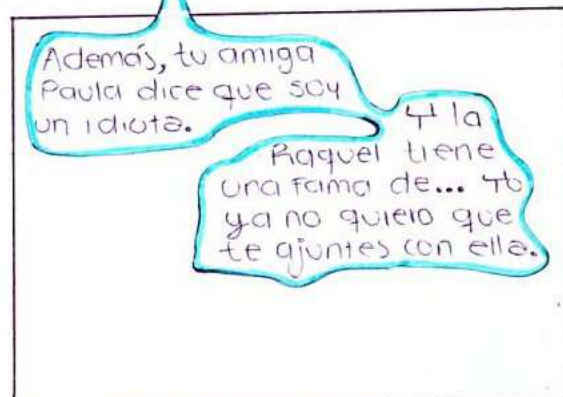 Además, tu amiga
Paula dice que soy
un idiota.
Y la
Raquel tiene
una fama de... Yo
ya no quiero que
te ajuntes con ella.